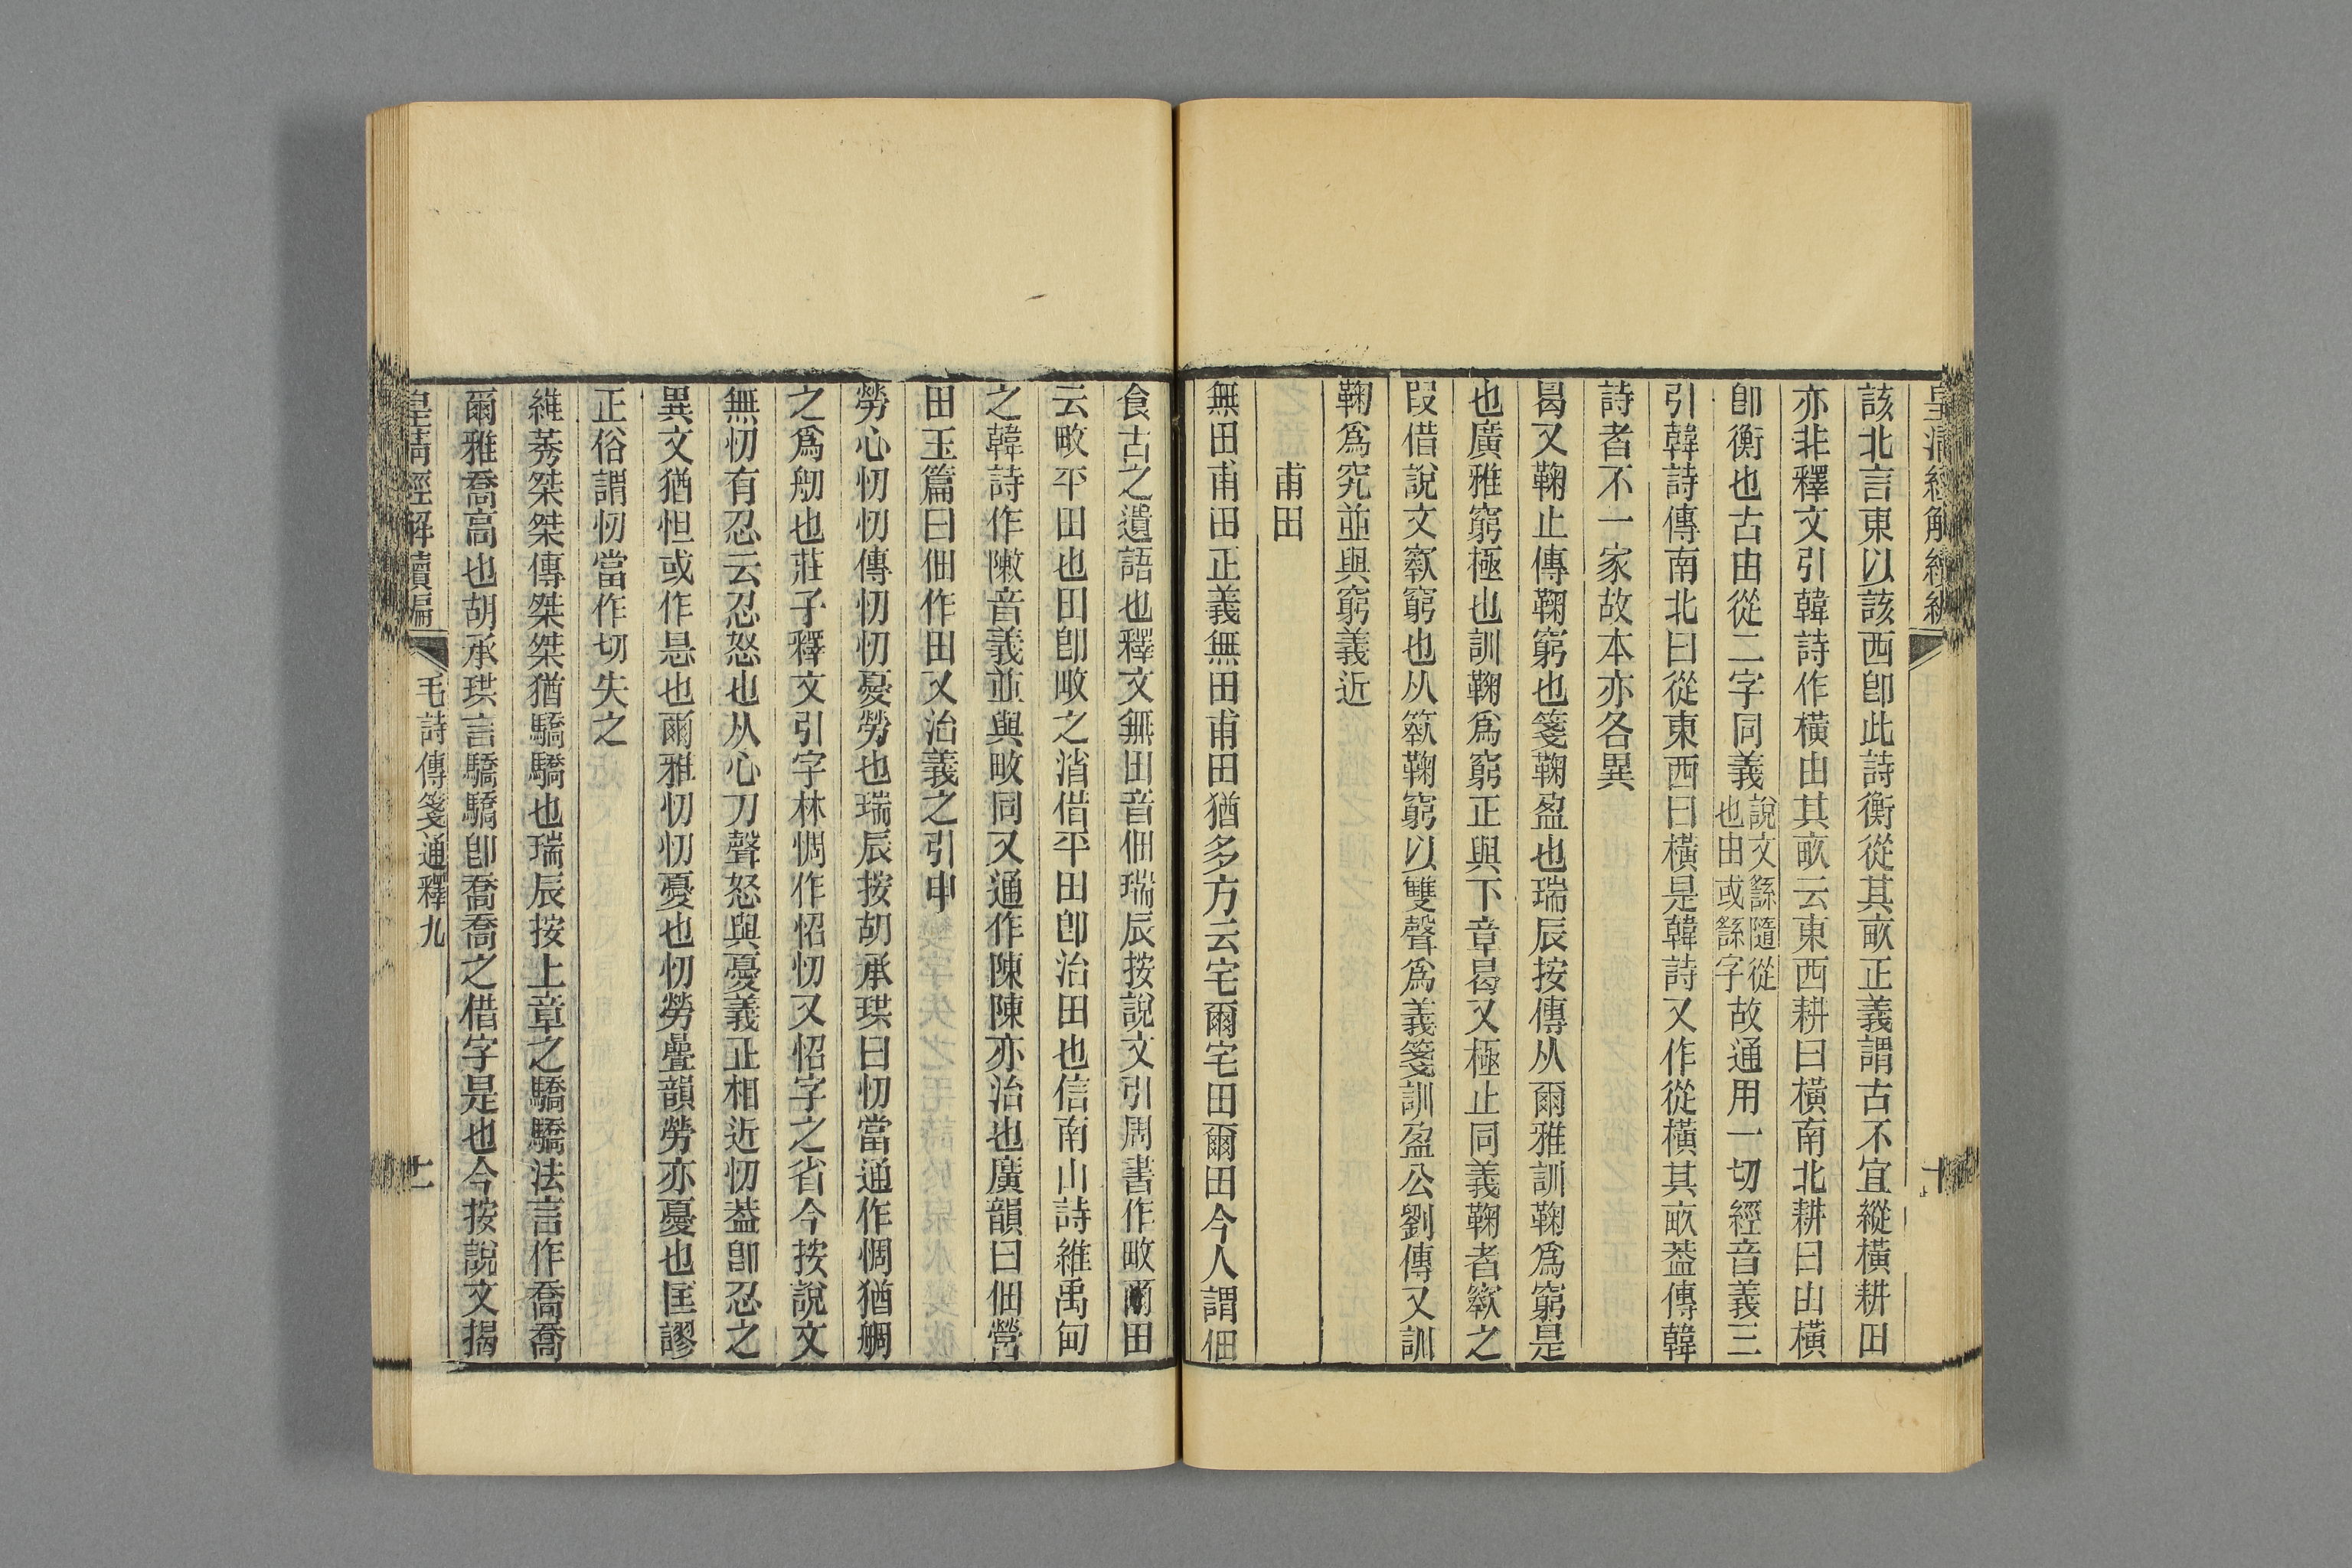 皇清經解續編
十
該北言東以該西卽此詩衡從其畝正義謂古不宜縱橫耕田
亦非釋文引韓詩作橫由其畝云東西耕曰橫南北耕曰由橫
卽衡也古由從二字同義說文繇隨從也由或繇字故通用一切經音義三
引韓詩傳南北曰從東西曰橫是韓詩又作從橫其畝葢傳韓
詩者不一家故本亦各異
曷又鞠止傳鞠窮也箋鞠盈也瑞辰按傳从爾雅訓鞠爲窮是
也廣雅窮極也訓鞠爲窮正與下章曷又極止同義鞠者窾之
叚借說文窾窮也从簐鞠窮以雙聲爲義箋訓盈公劉傳又訓
鞠爲究並與窮義近
甫田
無田甫田正義無田甫田猶多方云宅爾宅田爾田今人謂佃
食古之遺語也釋文無田音佃瑞辰按說文引周書作畋爾田
云畋平田也田卽畋之消借平田卽治田也信南山詩維禹甸
之韓詩作敶音義並與畋同又通作陳陳亦治也廣韻曰佃營
田玉篇曰佃作田又治義之引申
勞心忉忉傳忉忉憂勞也瑞辰按胡承珙曰忉當通作惆猶鯛
之爲舠也莊子釋文引字林惆作怊忉又怊字之省今按說文
無忉有忍云忍怒也从心刀聲怒與憂義正相近忉葢卽忍之
異文猶怛或作悬也爾雅忉忉憂也忉勞疊韻勞亦憂也匡謬
正俗謂忉當作切失之
維莠桀桀傳桀桀猶驕驕也瑞辰按上章之驕驕法言作喬喬
爾雅喬高也胡承珙言驕驕卽喬喬之借字是也今按說文揭
皇清經解續編
毛詩傳箋通釋九
十一